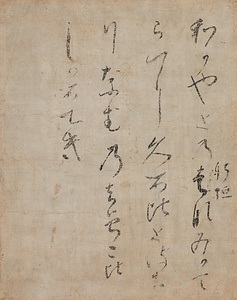 躬恒
わかやとの花みかて
らにくるひとはち
りなむ乃ちそこひ
しかるへき